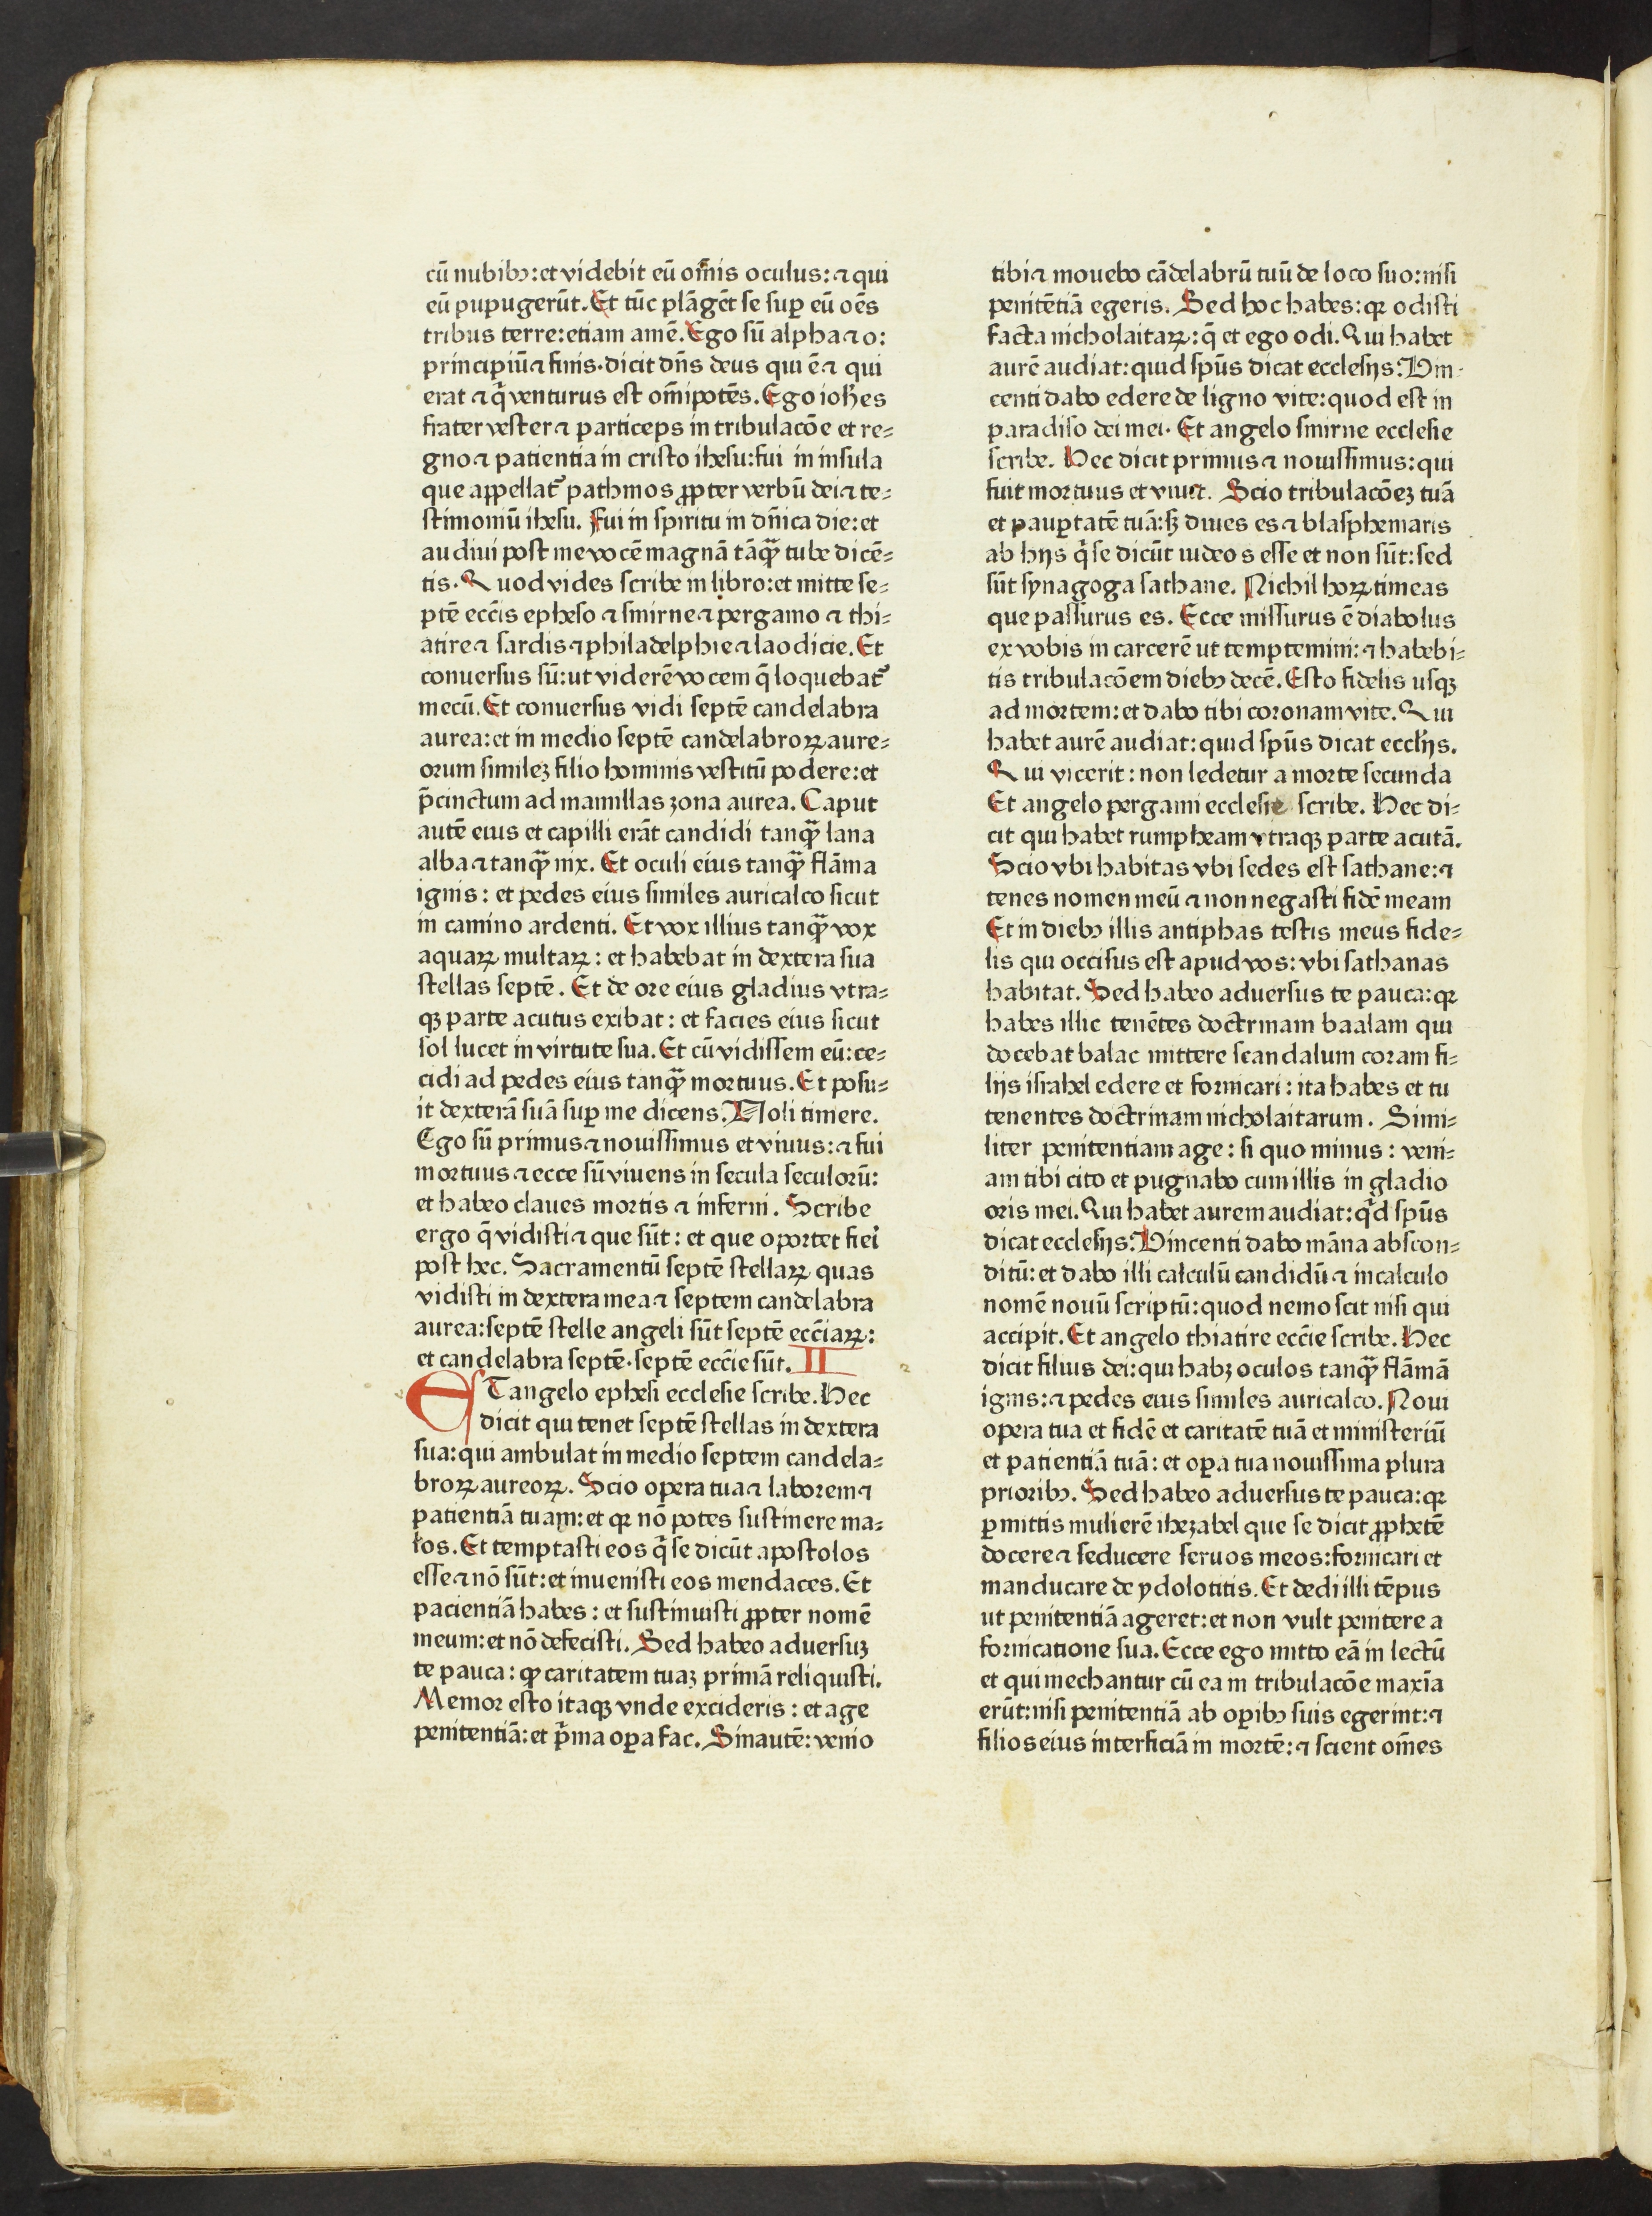 cū nubibꝫ:et videbit eū om̄is oculus:⁊ qui
eū pupugerūt. Et tūc plāgēt se suꝑ eū oēs
tribus terre:etiam amē. Ego sū alpha ⁊ o:
principiū ⁊ finis. dicit dn̄s deus qui ē ⁊ qui
erat ⁊ q̇ venturus est om̄ipotēs. Ego ioh̄es
frater vester ⁊ particeps in tribulacōe et re=
gno ⁊ patientia in cristo ihesu:fui in insula
que appellat᷑ pathmos ꝓpter verbū dei ⁊ te=
stimoniū ihesu. Fui in spiritu in dn̄ica die:et
audiui post me vocē magnā tāꝙ̄ tube dicē=
tis. Quod vides scribe in libro:et mitte se=
ptē ecc̄is epheso ⁊ smirne ⁊ pergamo ⁊ thi=
atire ⁊ sardis ⁊ philadelphie ⁊ laodicie. Et
conuersus sū:ut viderē vocem q̄ loquebat᷑
mecū. Et conuersus vidi septē candelabra
aurea:et in medio septē candelabroꝝ aure=
orum simileꝫ filio hominis vestitū podere:et
p̄cinctum ad mamillas zona aurea. Caput
autē eius et capilli erāt candidi tanꝙ̄ lana
alba ⁊ tanꝙ̄ nix. Et oculi eius tanꝙ̄ flāma
ignis: et pedes eius similes auricalco sicut
in camino ardenti. Et vox illius tanꝙ̄ vox
aquaꝝ multaꝝ: et habebat in dextera sua
stellas septē. Et de ore eius gladius vtra=
qꝫ parte acutus exibat: et facies eius sicut
sol lucet in virtute sua. Et cū vidissem eū:ce=
cidi ad pedes eius tanꝙ̄ mortuus. Et posu=
it dexterā suā suꝑ me dicens. Noli timere.
Ego sū primus ⁊ nouissimus et viuus:⁊ fui
mortuus ⁊ ecce sū viuens in secula seculorū:
et habeo claues mortis ⁊ inferni. Scribe
ergo q̄ vidisti ⁊ que sūt: et que oportet fiei̇
post hec. Sacramentū septē stellaꝝ quas
vidisti in dextera mea ⁊ septem candelabra
aurea:septē stelle angeli sūt septē ecc̄iaꝝ:
et candelabra septē. septē ecc̄ie sūt. II
ET angelo ephesi ecclesie scribe. Hec
dicit qui tenet septē stellas in dextera
sua:qui ambulat in medio septem candela=
broꝝ aureoꝝ. Scio opera tua ⁊ laborem ⁊
patientiā tuam:et qꝛ nō potes sustinere ma=
los. Et temptasti eos q̇ se dicūt apostolos
esse ⁊ nō sūt:et inuenisti eos mendaces. Et
pacientiā habes: et sustinuisti ꝓpter nomē
meum:et nō defecisti. Sed habeo aduersuꝫ
te pauca: ꝙ caritatem tuaꝫ primā reliquisti.
Memor esto itaqꝫ vnde excideris: et age
penitentiā:et ṗma oꝑa fac. Sinautē: venio
tibi ⁊ mouebo cādelabrū tuū de loco suo:nisi
penitētiā egeris. Sed hoc habes:qꝛ odisti
facta nicholaitaꝝ:q̄ et ego odi. Qui habet
aurē audiat:quid sp̄us dicat ecclesijs. Vin-
centi dabo edere de ligno vite:quod est in
paradiso dei mei. Et angelo smirne ecclesie
scribe. Hec dicit primus ⁊ nouissimus:qui
fuit mortuus et viuit. Scio tribulacōeꝫ tuā
et pauꝑtatē tuā:sꝫ diues es ⁊ blasphemaris
ab hijs q̇ se dicūt iudeos esse et non sūt:sed
sūt synagoga sathane. Nichil hoꝝ timeas
que passurus es. Ecce missurus ē diabolus
ex vobis in carcerē ut temptemini:⁊ habebi=
tis tribulacōem diebꝫ decē. Esto fidelis usqꝫ
ad mortem:et dabo tibi coronam vite. Qui
habet aurē audiat:quid sp̄us dicat eccl̄ijs.
Qui vicerit: non ledetur a morte secunda
Et angelo pergami ecclesie scribe. Hec di=
cit qui habet rumpheam vtraqꝫ parte acutā.
Scio vbi habitas vbi sedes est sathane:⁊
tenes nomen meū ⁊ non negasti fidē meam
Et in diebꝫ illis antiphas testis meus fide=
lis qui occisus est apud vos: vbi sathanas
habitat. Sed habeo aduersus te pauca:qꝛ
habes illic tenētes doctrinam baalam qui
docebat balac mittere scandalum coram fi=
lijs israhel edere et fornicari: ita habes et tu
tenentes doctrinam nicholaitarum. Simi=
liter penitentiam age: si quo minus: veni=
am tibi cito et pugnabo cum illis in gladio
oris mei. Qui habet aurem audiat:q̇d sp̄us
dicat ecclesijs. Vincenti dabo māna abscon=
ditū:et dabo illi calculū candidū ⁊ in calculo
nomē nouū scriptū:quod nemo scit nisi qui
accipit. Et angelo thiatire ecc̄ie scribe. Hec
dicit filius dei:qui habꝫ oculos tanꝙ̄ flāmā
ignis:⁊ pedes eius similes auricalco. Noui
opera tua et fidē et caritatē tuā et ministeriū
et patientiā tuā: et oꝑa tua nouissima plura
prioribꝫ. Sed habeo aduersus te pauca:qꝛ
ꝑmittis mulierē ihezabel que se dicit ꝓphetē
docere ⁊ seducere seruos meos:fornicari et
manducare de ydolotitis. Et dedi illi tēpus
ut penitentiā ageret:et non vult penitere a
fornicatione sua. Ecce ego mitto eā in lectū
et qui mechantur cū ea in tribulacōe maxīa
erūt:nisi penitentiā ab oꝑibꝫ suis egerint:⁊
filios eius interficiā in mortē:⁊ scient om̄es